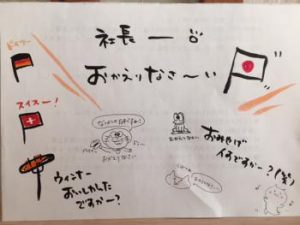 ドイツー
社長ー
おかえりなさ〜い
スイスー！
おかえりなさい
おみやげ
何ですかー？（笑）
ウィンナー
おいしかった
ですかー？